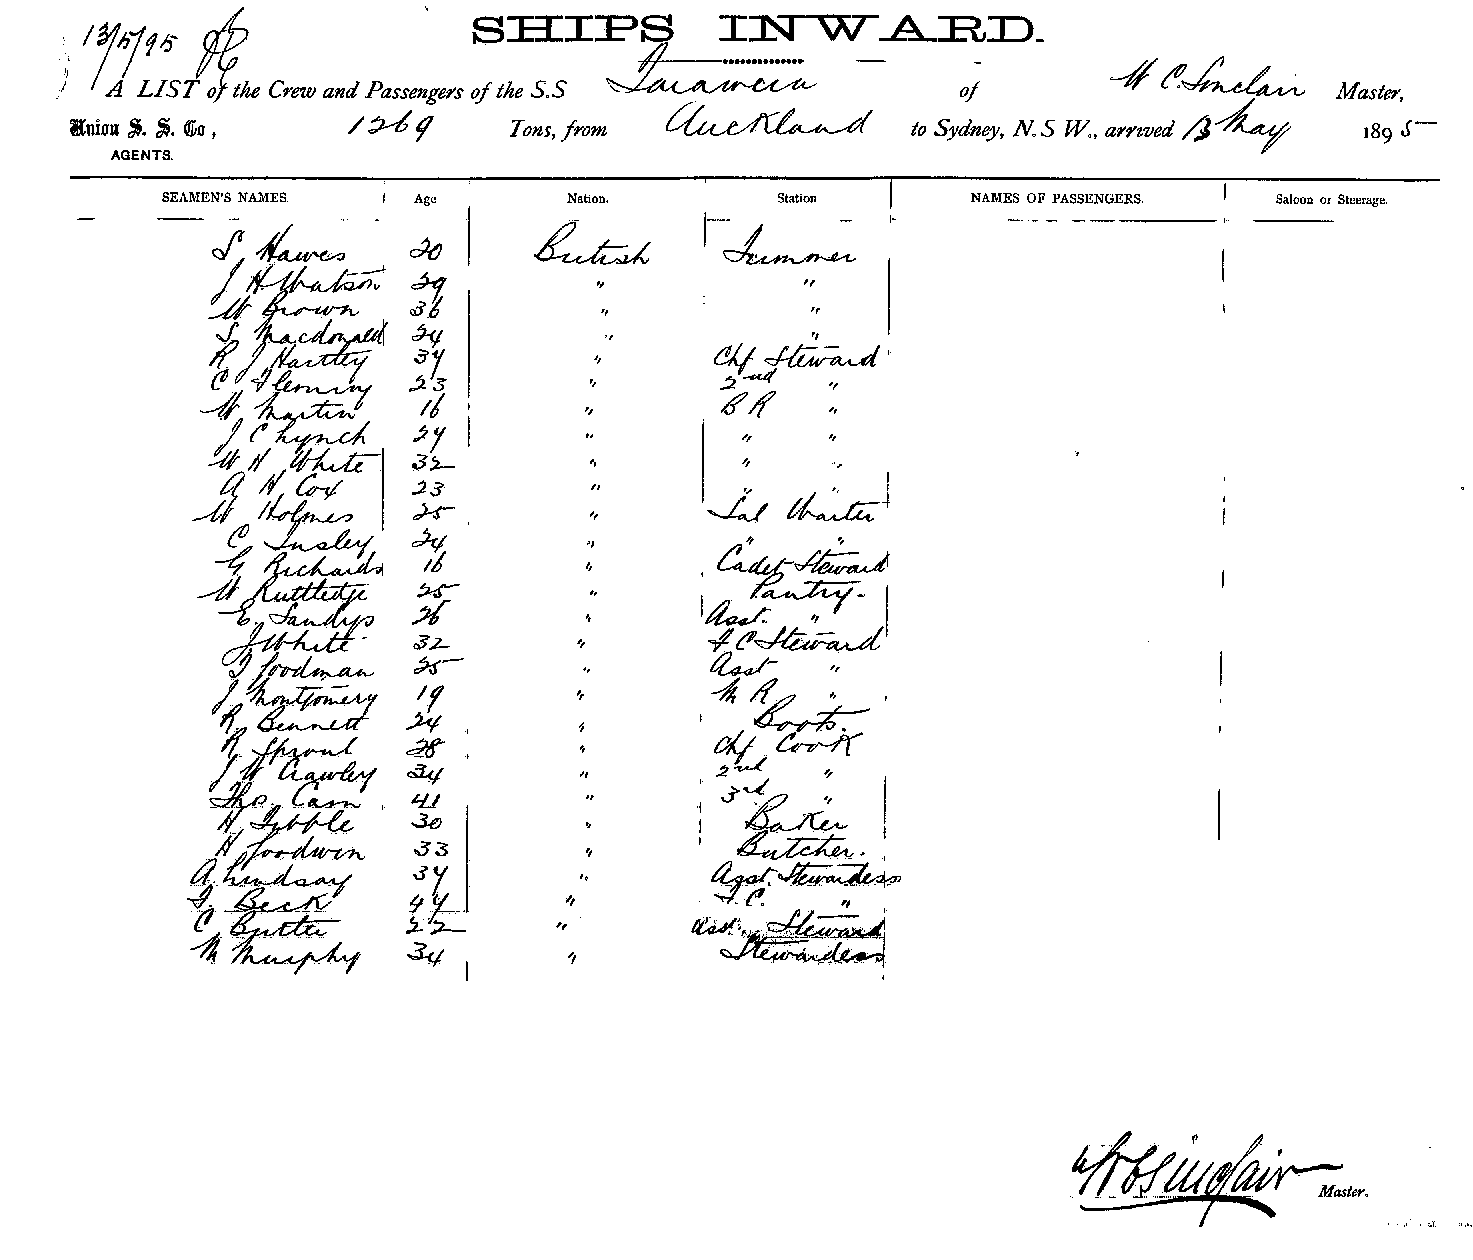 SHIPS INWARD.
13/5/95
A LIST of the Crew and Passengers of the S.S Tarawera of W C. Sinclair Master,
Union S. S. Co., 1269 Tons, from Auckland to Sydney, N.S W., arrived 13 May 1895
AGENTS.
SEAMEN'S NAMES. Age Nation. Station NAMES OF PASSENGERS. Saloon or Steerage.
S Hawes 20 British Trimmer
J H Watson 29 " "
W Brown 36 " "
S Macdonald 24 " "
R J Hartley 34 " Chf Steward
C Fleming 23 " 2nd "
W Martin 16 " B R "
J C Lynch 24 " " "
W H White 32 " " "
A H Cox 23 " " "
W Holmes 25 " Sal Waiter
C Insley 24 " " "
G Richards 16 " Cadet Steward
W Ruttledge 25 " Pantry.
E. Sandys 26 " Asst. "
J White 32 " F C Steward
T Goodman 25 " Asst "
J Montgomery 19 " M R "
R Bennett 24 " Boots.
R Sproul 28 " Chf Cook
J W Crawley 34 " 2nd "
Tho. Carn 41 " 3rd "
H Tibble 30 " Baker
H Goodwin 33 " Butcher.
A Lindsay 34 " Asst. Stewardess
T. Beck 44 " F.C. "
C Butler 22 " Asst. Steward
M Murphy 34 " Stewardess
W C Sinclair Master.